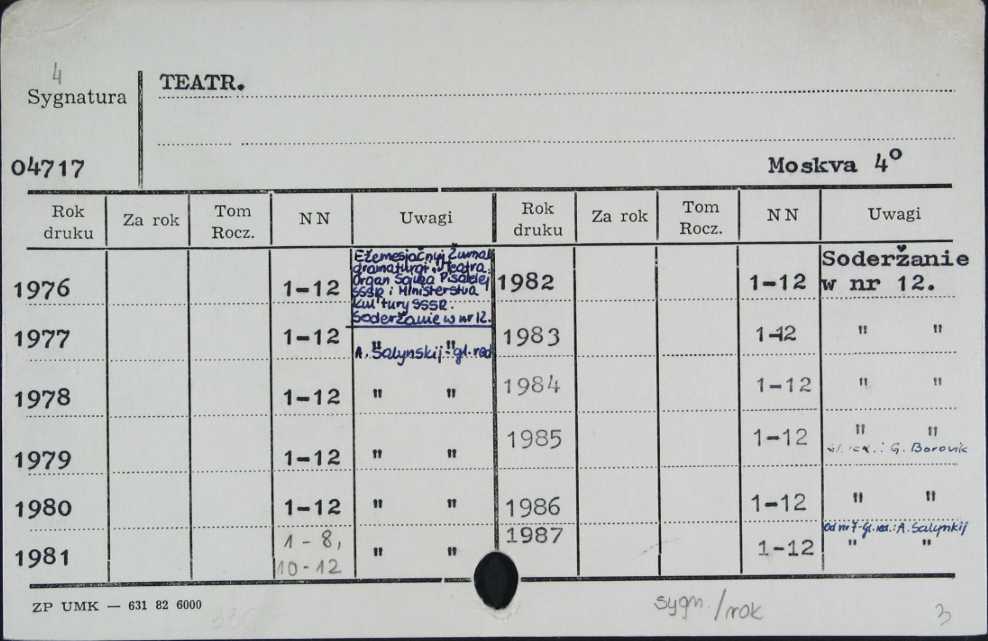 4
Sygnatura
TEATR.
04717
Moskva 4°
Rok druku Za rok Tom Rocz. NN Uwagi Rok druku Za rok Tom Rocz. NN Uwagi
1976 1-12 Ežemesjačnyj žurnal
dramaturgi i teatra.
Organ Sojuza Pisatelej
SSSR i Ministerstva
kul'tury SSSR.
Soderžanie w nr 12.
1982 1-12 Soderžanie
w nr 12.
1977 1-12 " "
A. Salynskij - gl. red
1983 1-12 " "
1978 1-12 " "
1984 1-12 " "
1979 1-12 " "
1985 1-12 " "
G. Borovik
1980 1-12 " "
1986 1-12 " "
1981 1-8,
10-12 " "
1987 1-12 Od nr 7-gl. red.: A. Salynkij
" "
ZP UMK — 631 82 6000
sygn./rok
3